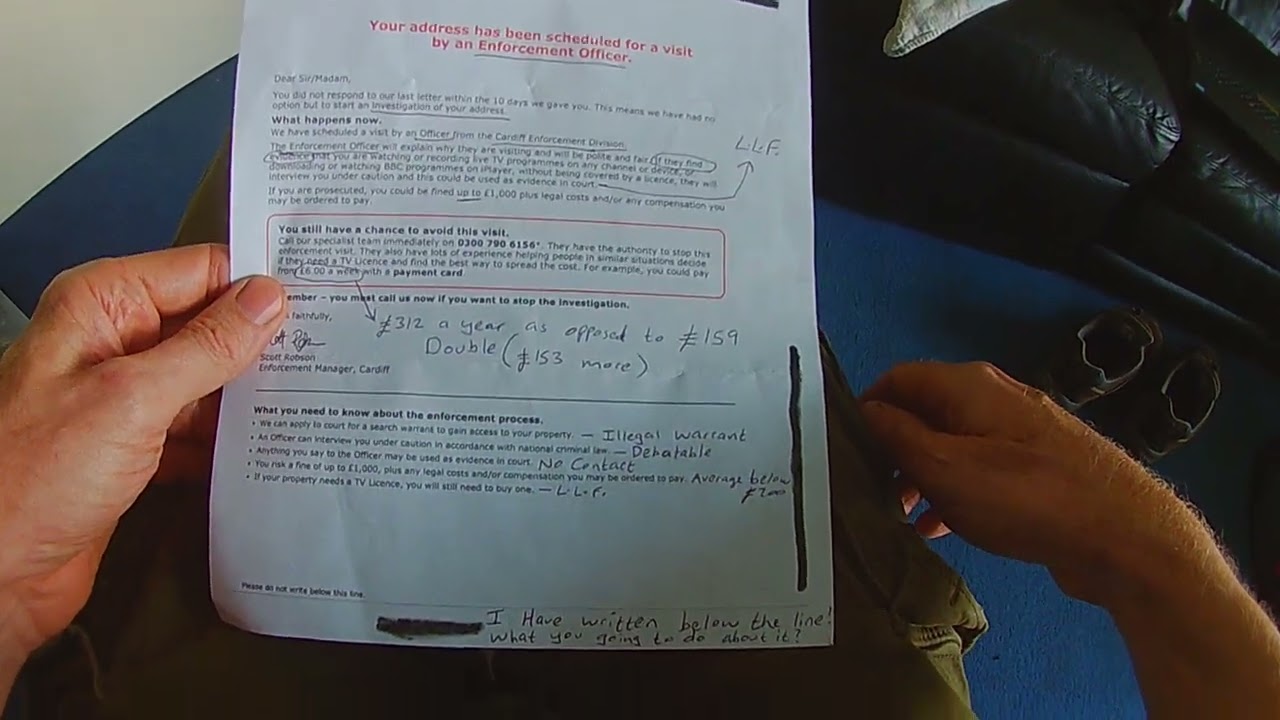 Your address has been scheduled for a visit
by an Enforcement Officer.
Dear Sir/Madam,
You did not respond to our last letter within the 10 days we gave you. This means we have had no
option but to start an investigation of your address.
What happens now.
We have scheduled a visit by an Officer from the Cardiff Enforcement Division.
The Enforcement Officer will explain why they are visiting and will be polite and fair. If they find
evidence that you are watching or recording live TV programmes on any channel or device, or
downloading or watching BBC programmes on iPlayer, without being covered by a licence, they will
interview you under caution and this could be used as evidence in court.
L.L.F.
If you are prosecuted, you could be fined up to £1,000 plus legal costs and/or any compensation you
may be ordered to pay.
You still have a chance to avoid this visit.
Call our specialist team immediately on 0300 790 6156*. They have the authority to stop this
enforcement visit. They also have lots of experience helping people in similar situations decide
if they need a TV Licence and find the best way to spread the cost. For example, you could pay
from £6.00 a week with a payment card
ember – you must call us now if you want to stop the investigation.
faithfully,
£312 a year as opposed to £159
Double (£153 more)
Scott Robson
Enforcement Manager, Cardiff
What you need to know about the enforcement process.
• We can apply to court for a search warrant to gain access to your property. — Illegal warrant
• An Officer can interview you under caution in accordance with national criminal law. — Debatable
• Anything you say to the Officer may be used as evidence in court. No Contact
• You risk a fine of up to £1,000, plus any legal costs and/or compensation you may be ordered to pay. Average below
£200
• If your property needs a TV Licence, you will still need to buy one. — L.L.F.
Please do not write below this line.
I Have written below the line!
What you going to do about it?